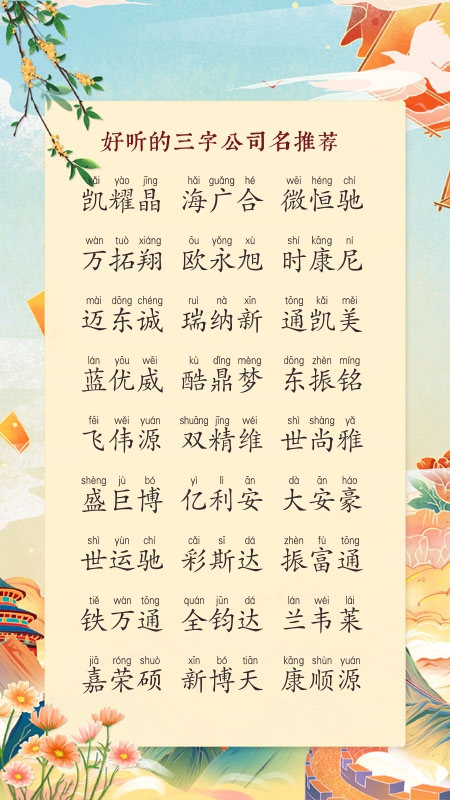 好听的三字公司名推荐
kǎi yào jīng hǎi guǎng hé wēi héng chí
凯耀晶 海广合 微恒驰
wàn tuò xiáng ōu yǒng xù shí kāng ní
万拓翔 欧永旭 时康尼
mài dōng chéng ruì nà xīn tōng kǎi měi
迈东诚 瑞纳新 通凯美
lán yōu wēi kù dǐng mèng dōng zhèn míng
蓝优威 酷鼎梦 东振铭
fēi wěi yuán shuāng jīng wéi shì shàng yǎ
飞伟源 双精维 世尚雅
shèng jù bó yì lì ān dà ān háo
盛巨博 亿利安 大安豪
shì yùn chí cǎi sī dá zhèn fù tōng
世运驰 彩斯达 振富通
tiě wàn tōng quán jūn dá lán wéi lái
铁万通 全钧达 兰韦莱
jiā róng shuò xīn bó tiān kāng shùn yuán
嘉荣硕 新博天 康顺源